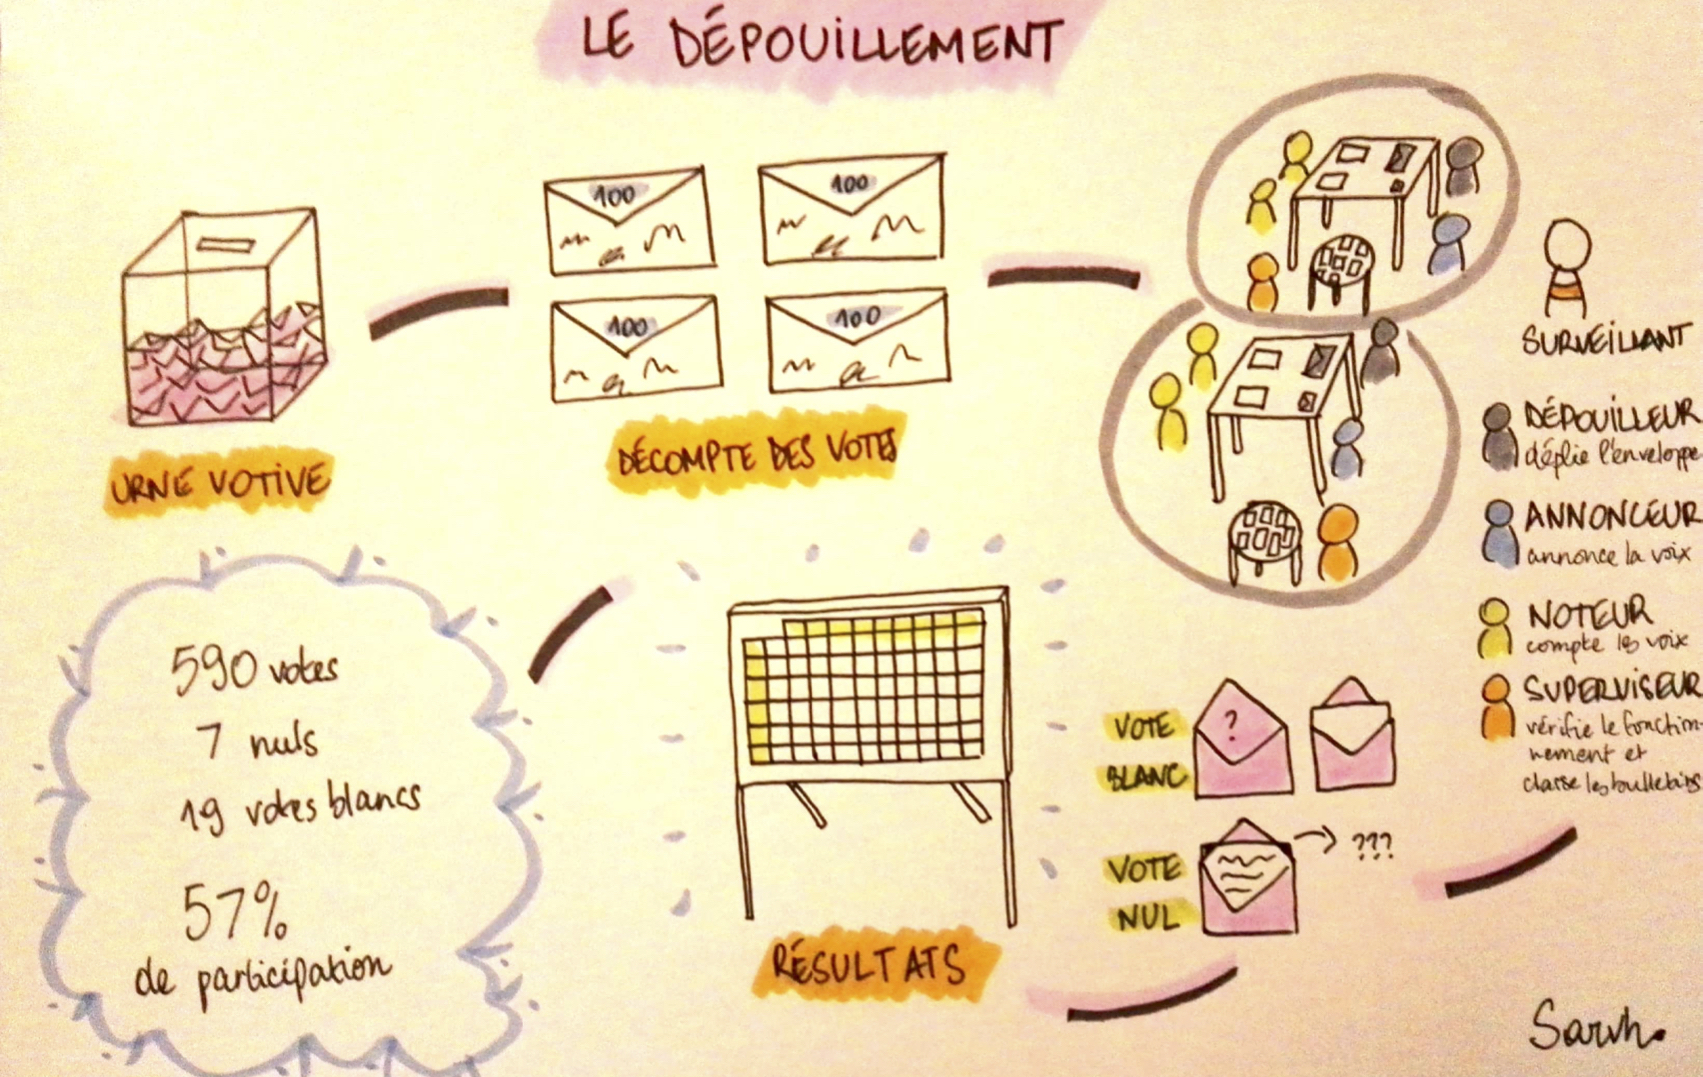 LE DÉPOUILLEMENT
URNE VOTIVE
100
100
100
100
DÉCOMPTE DES VOTES
SURVEILLANT
DÉPOUILLEUR
déplie l'enveloppe
ANNONCEUR
annonce la voix
NOTEUR
compte les voix
SUPERVISEUR
vérifie le fonction-
nement et
classe les bulletins
VOTE
BLANC
?
VOTE
NUL
???
RÉSULTATS
590 votes
7 nuls
19 votes blancs
57%
de participation
Sarah.